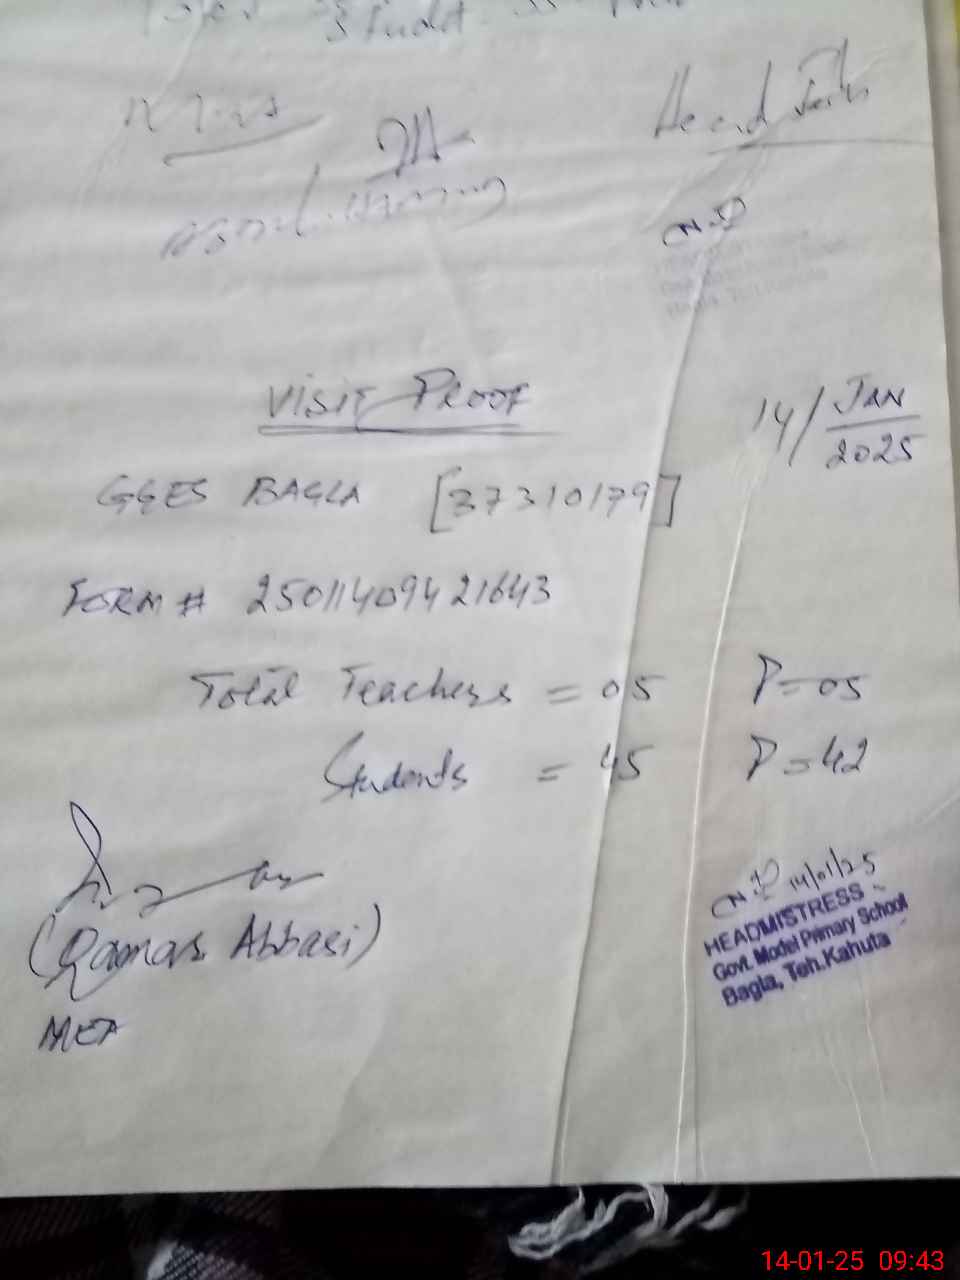 Head
VISIT PROOF
14/JAN
2025
GGES BAGLA [37310179]
FORM # 250114094 21643
Total Teachers = 05 P=05
Students = 45 P=42
14/01/25
HEADMISTRESS
Govt. Model Primary School
Bagla, Teh.Kahuta
(Qamar Abbasi)
MEA
14-01-25 09:43